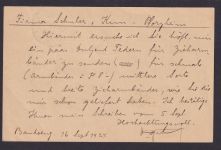 Firma Schuler, Herrn Pforzheim
Hiermit ersuche ich Sie höfl. mir
ein paar Dutzend Federn für Zieharm-
bänder zu senden für schmale
(Armbänder mittlere Sorte
und breite Zieharmbänder, wie Sie dies
mir schon geliefert haben. Ich bestätige
Ihnen mein Schreiben vom 5. Sept.
Hochachtungsvoll.
Bamberg, 16 Sept 1925